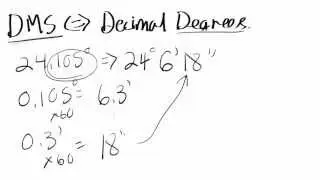 DMS <=> Decimal Degrees.
24.105° => 24° 6' 18"
0.105° = 6.3'
x60
0.3' = 18"
x60